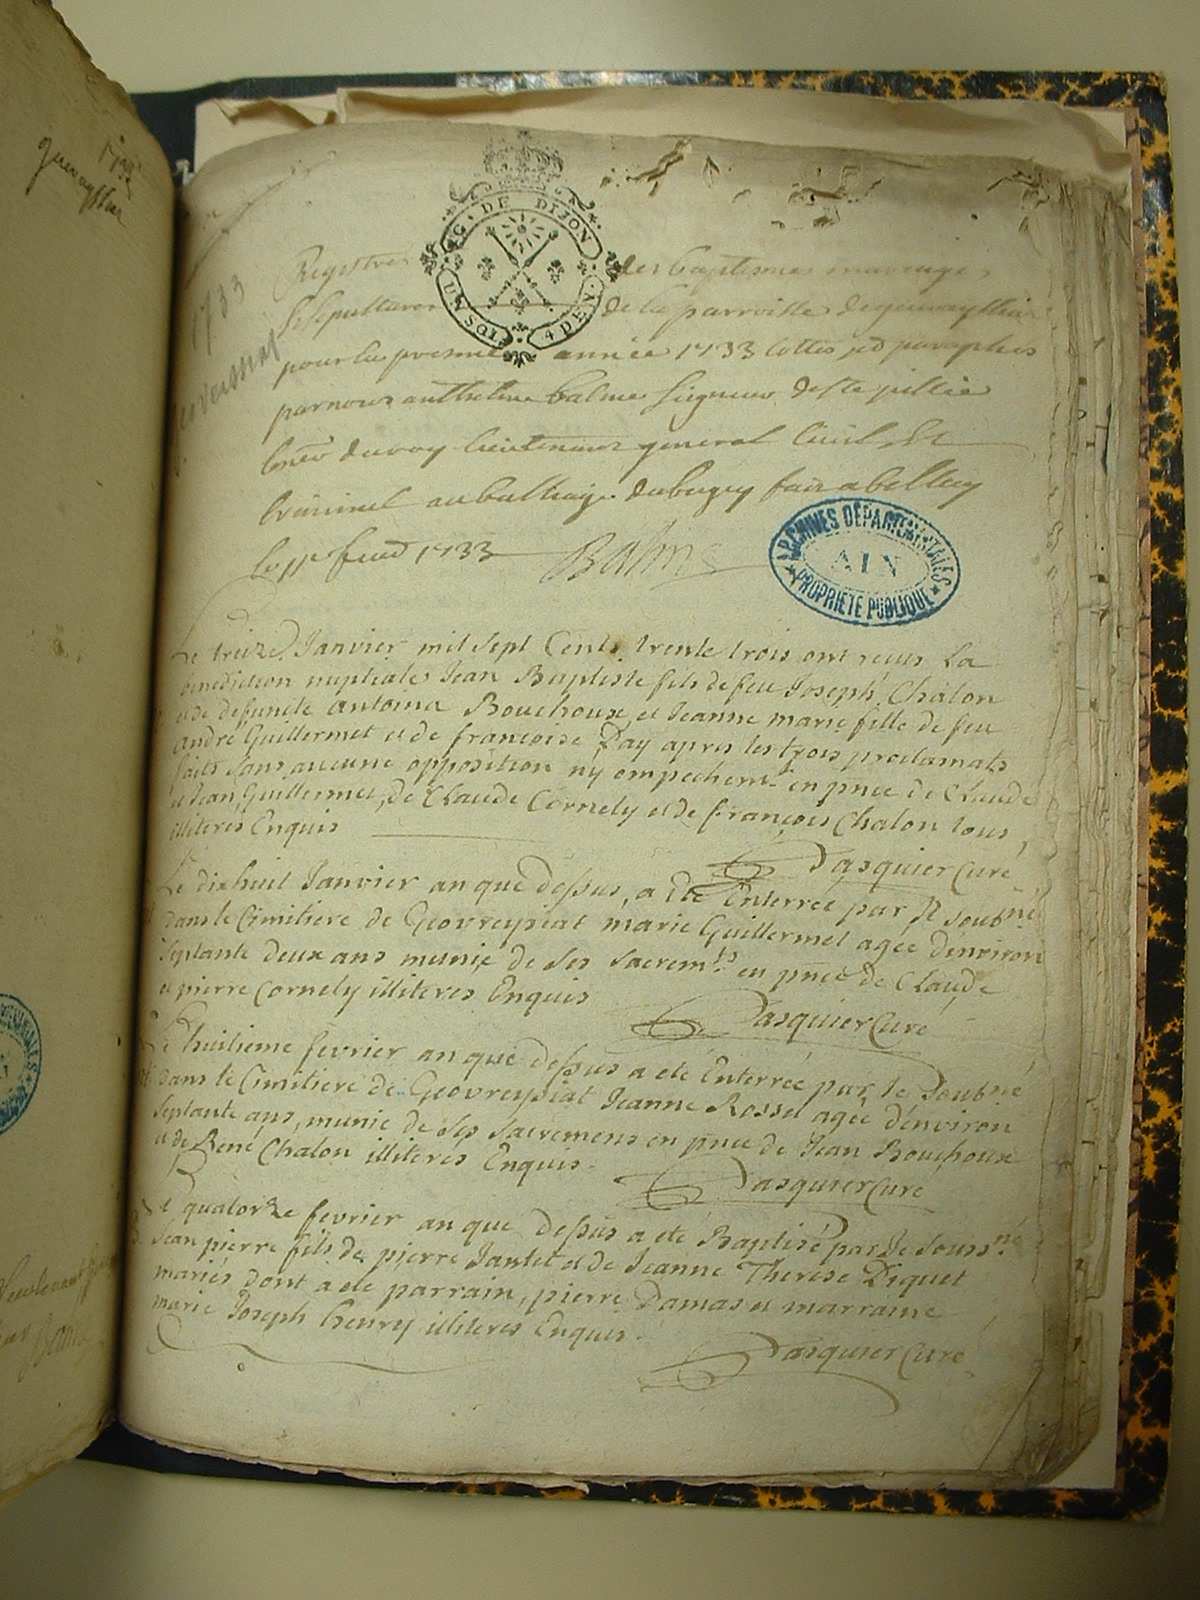 1733
G. DE DIJON
UN SOL
4 DEN.
Registres des baptismes mariages
& sepultures de la parroisse de
pour la presente année 1733 cottes et paraphés
par nous anthelme balme seigneur de ste
du roy lieutenant general civil et
criminel au balliage du bugey fait a belley
le 1733 Balme
ARCHIVES DÉPARTEMENTALES
AIN
PROPRIÉTÉ PUBLIQUE
Le treize Janvier mil sept Cents trente trois ont reçus La
benediction nuptiale Jean Baptiste fils de feu Joseph Chalon
et de defunte Antoina Bouchoux, et Jeanne marie fille de feu
André Guillermet et de francoise Pay apres les trois proclamats
faits sans aucune opposition ny empechemt en pnce de Claude
et Jean Guillermet, de Claude Cornely et de françois Chalon tous
illiteres Enquis
Pasquier Curé
Le dixhuit Janvier an que dessus, a été Enterrée par Je soubné
dans le Cimitiere de Geovreysiat marie Guillermet agée d'environ
septante deux ans munie de ses sacremts en pnce de Claude
et pierre Cornely illiteres Enquis
Pasquier Curé
Le huitieme fevrier an que dessus a été Enterrée par Je Soubné
dans le Cimitiere de Geovreysiat Jeanne Rosset agée d'environ
septante ans, munie de ses sacremens en pnce de Jean Bouchoux
et de René Chalon illiteres Enquis.
Pasquier Curé
Le quatorze fevrier an que dessus a été Baptisé par Je Sousné
Jean pierre fils de pierre Jantet et de Jeanne Therese Piquet
mariés dont a été parrain, pierre Damas et marraine
marie Joseph henry illiteres Enquis.
Pasquier Curé